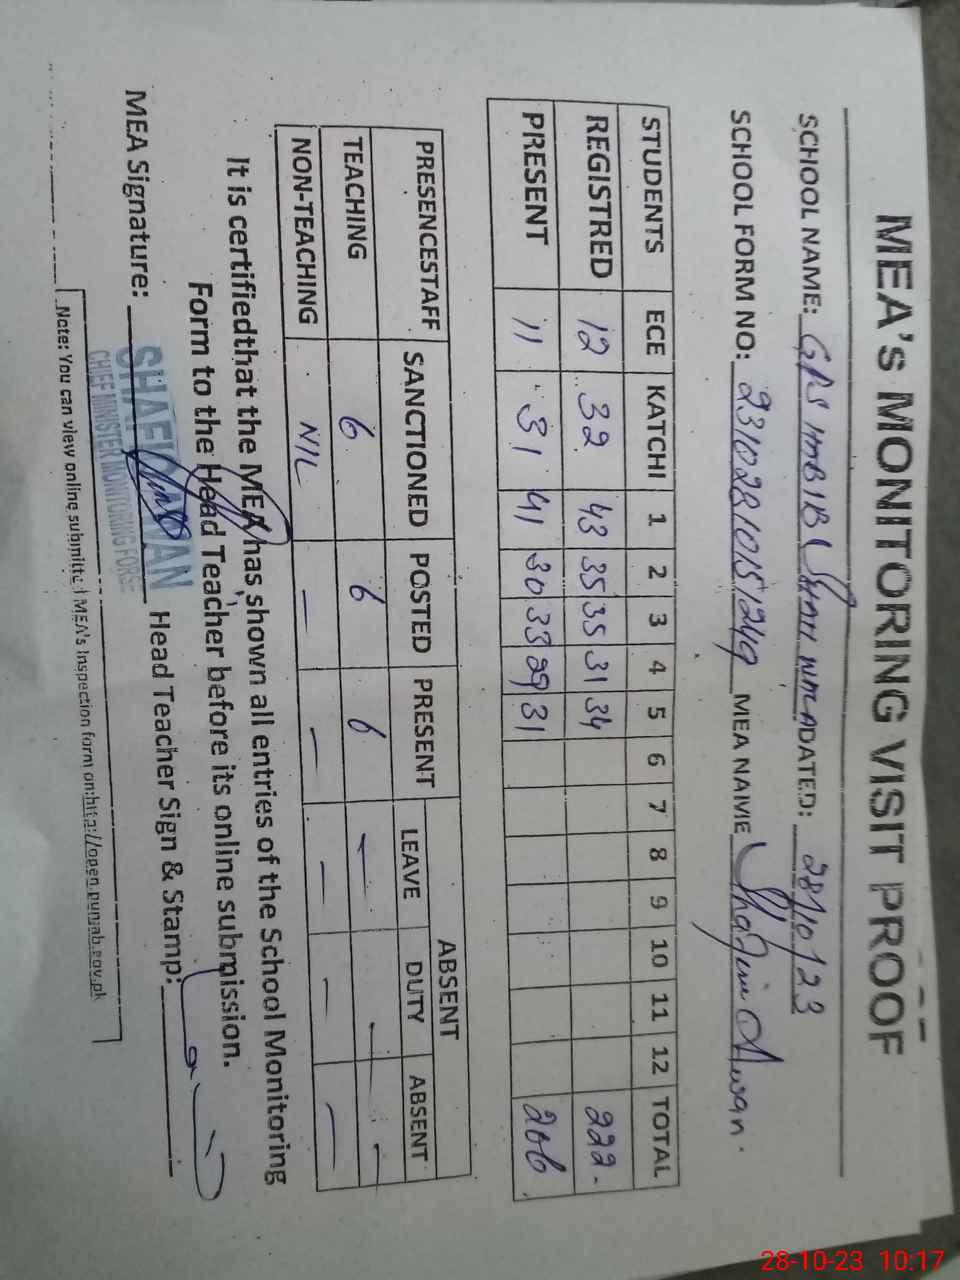 MEA's MONITORING VISIT PROOF
SCHOOL NAME: GPS HABIB Shah DATED: 28/10/23
SCHOOL FORM NO: 23102810151249 MEA NAME Shafiu Awan.
STUDENTS ECE KATCHI 1 2 3 4 5 6 7 8 9 10 11 12 TOTAL
REGISTRED 12 32 43 35 35 31 34 222
PRESENT 11 31 41 30 33 29 31 206
PRESENCESTAFF SANCTIONED POSTED PRESENT ABSENT
LEAVE DUTY ABSENT
TEACHING 6 6 6 - - -
NON-TEACHING NIL - - - - -
It is certifiedthat the MEA has shown all entries of the School Monitoring
Form to the Head Teacher before its online submission.
MEA Signature: Head Teacher Sign & Stamp:
AWAN
CHIEF MINISTER MONITORING FORSE
Note: You can view online submitted MEA's Inspection form on:http://open.punjab.gov.pk
28-10-23 10:17